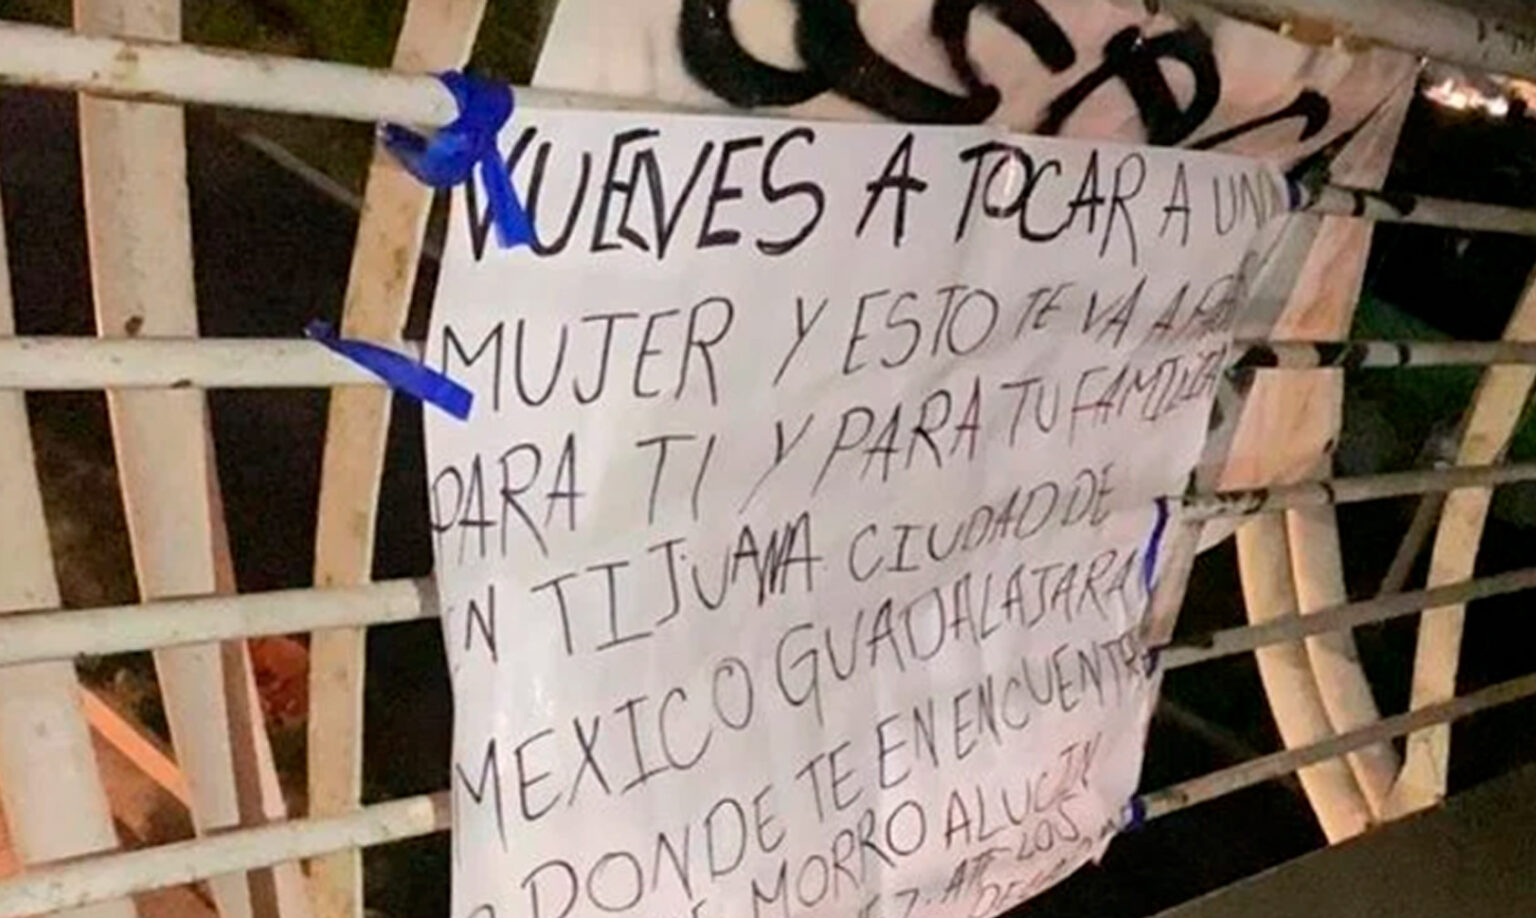 VUELVES A TOCAR A UNA
MUJER Y ESTO TE VA A
PARA TI Y PARA TU FAMILIA
EN TIJUANA CIUDAD DE
MEXICO GUADALAJARA
DONDE TE EN ENCUENTRE
MORRO ALUCIN
ATT LOS